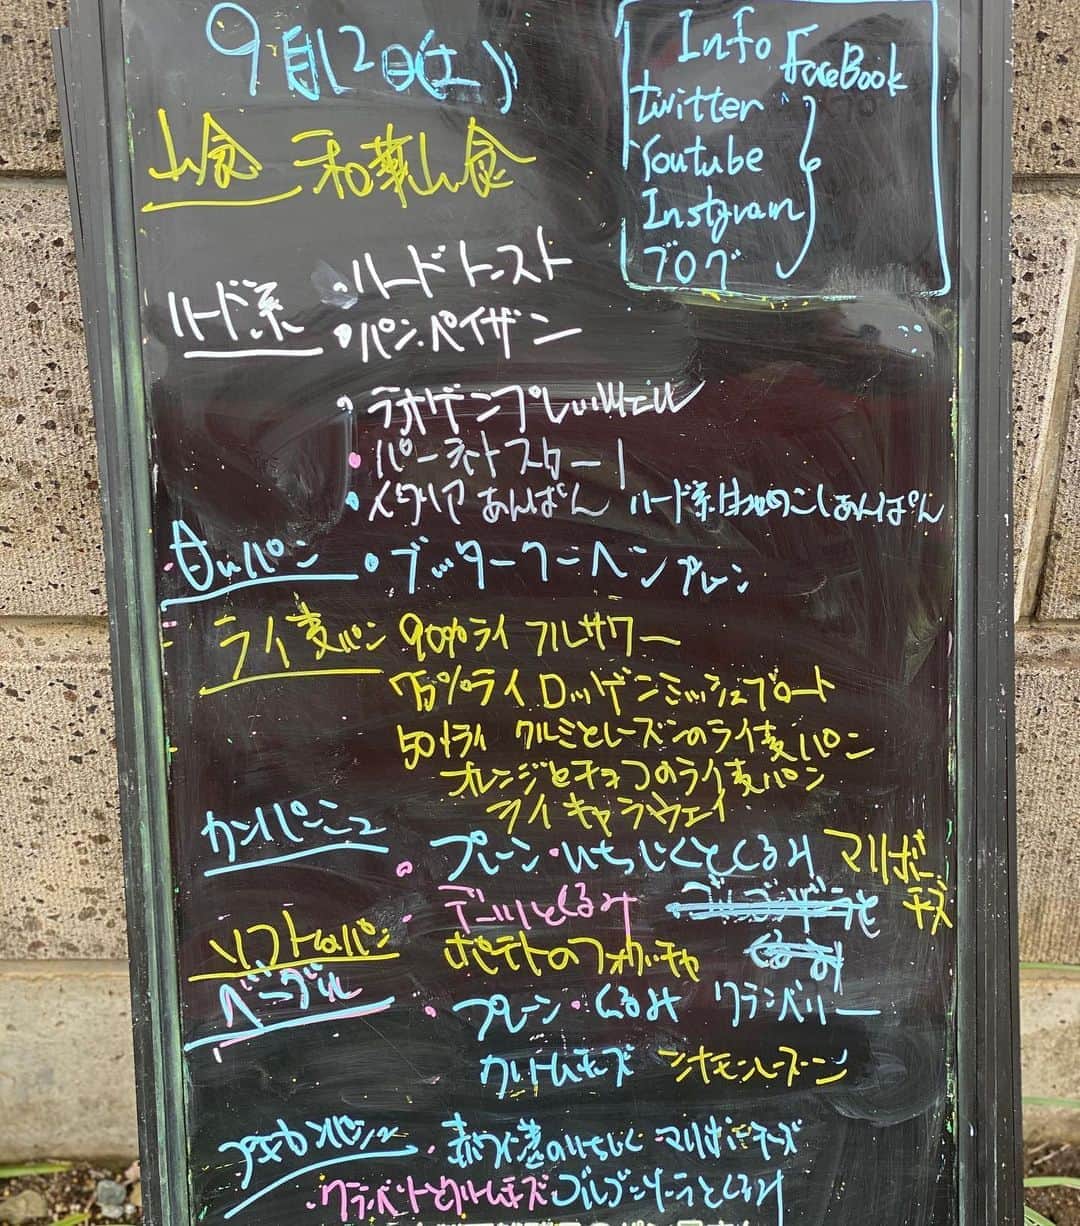 9月12日(土)
Info FaceBook
twitter
Youtube
Instgram
ブログ
山食 和華山食
ハード系 ・ハードトースト
・パン・ペイザン
・イタリアあんぱん ハード系 こしあんぱん
甘いパン ・ブッタークーヘン プレーン
ライ麦パン 90%ライ フルサワー
75%ライ ロッゲンミッシュブロート
50%ライ クルミとレーズンのライ麦パン
オレンジとチョコのライ麦パン
ライキャラウェイ
カンパーニュ
・プレーン・いちじくとくるみ マリボーチーズ
デーツとくるみ
ソフトなパン ポテトのフォカッチャ
ベーグル ・プレーン・くるみ クランベリー
クリームチーズ シナモンレーズン
プチカンパーニュ ・赤ワイン煮のいちじく マリボーチーズ
・クランベリーとクリームチーズ・ゴルゴンゾーラとくるみ